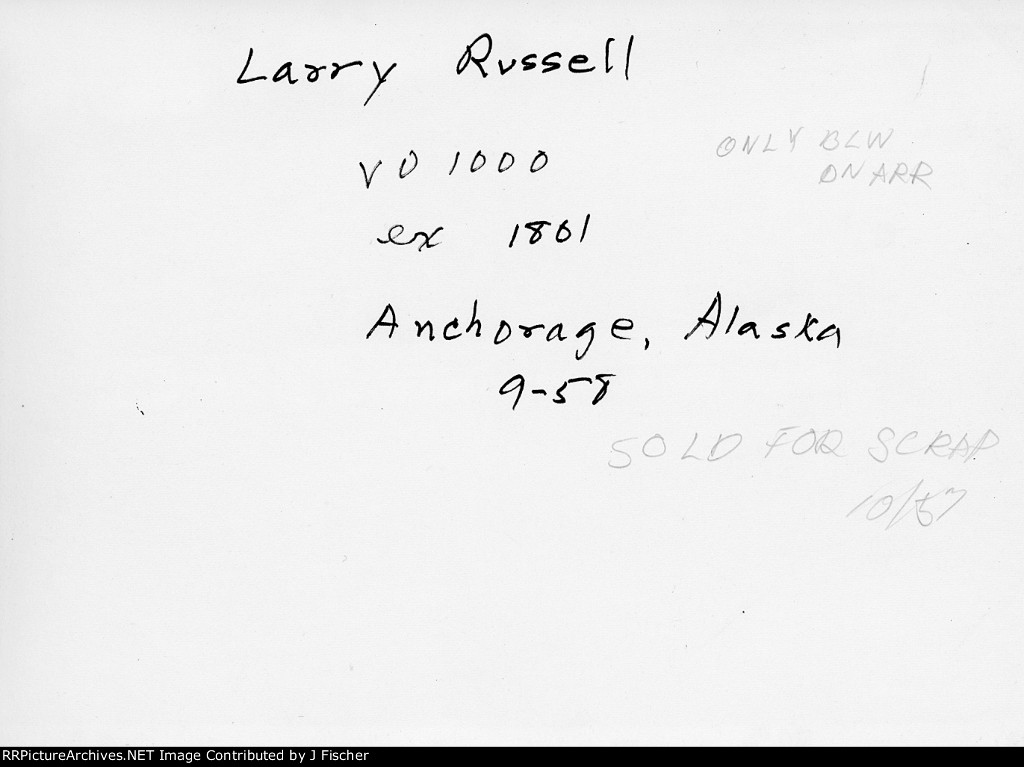 Larry Russell
VO 1000
ONLY BLW
ON ARR
ex 1801
Anchorage, Alaska
9-58
SOLD FOR SCRAP
10/57
RRPictureArchives.NET Image Contributed by J Fischer